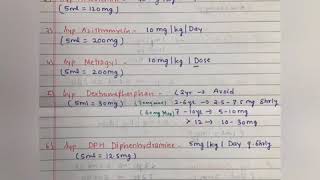 (5ml = 120mg)
3) Syp Azithromycin - 10 mg | kg | Day
(5ml = 200mg)
4) Syp Metrogyl - 10mg | kg | Dose
(5ml = 200mg)
5) Syp Dextromethorphan - <2yr → Avoid
(5ml = 30mg) 2-6yrs → 2.5 - 7.5mg 8hrly
7-10yrs → 5-10mg
> 12 → 10-30mg
6) Syp DPH Diphenhydramine - 5mg | kg | Day 9 6hrly
(5ml = 12.5mg)